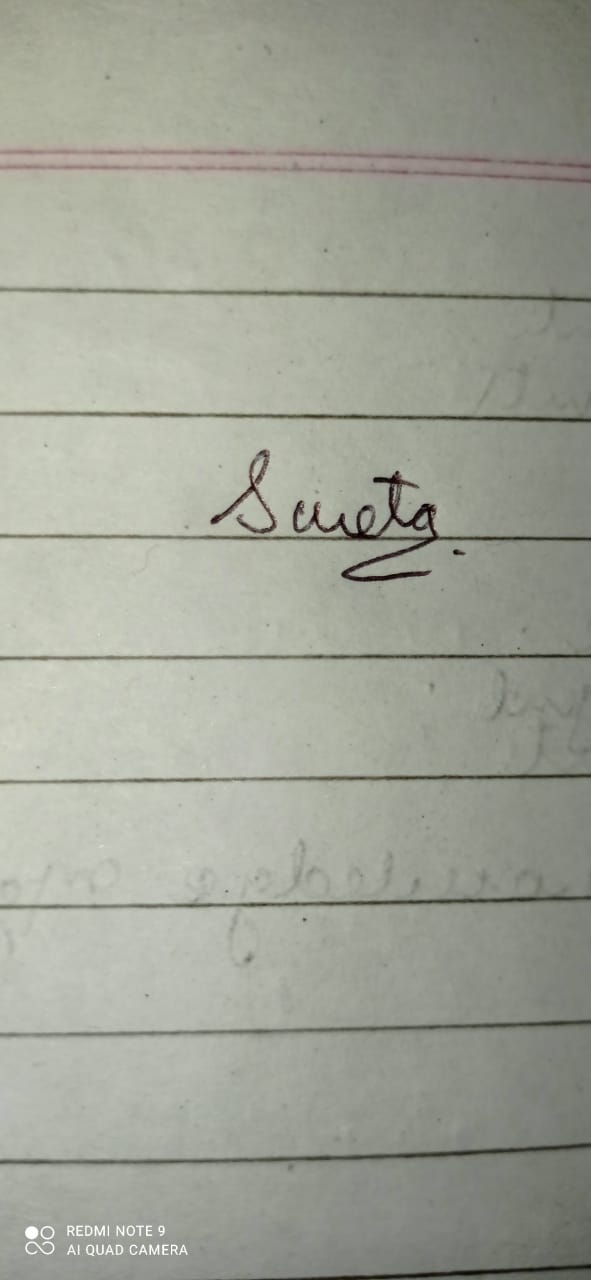 Sweta.
REDMI NOTE 9
AI QUAD CAMERA